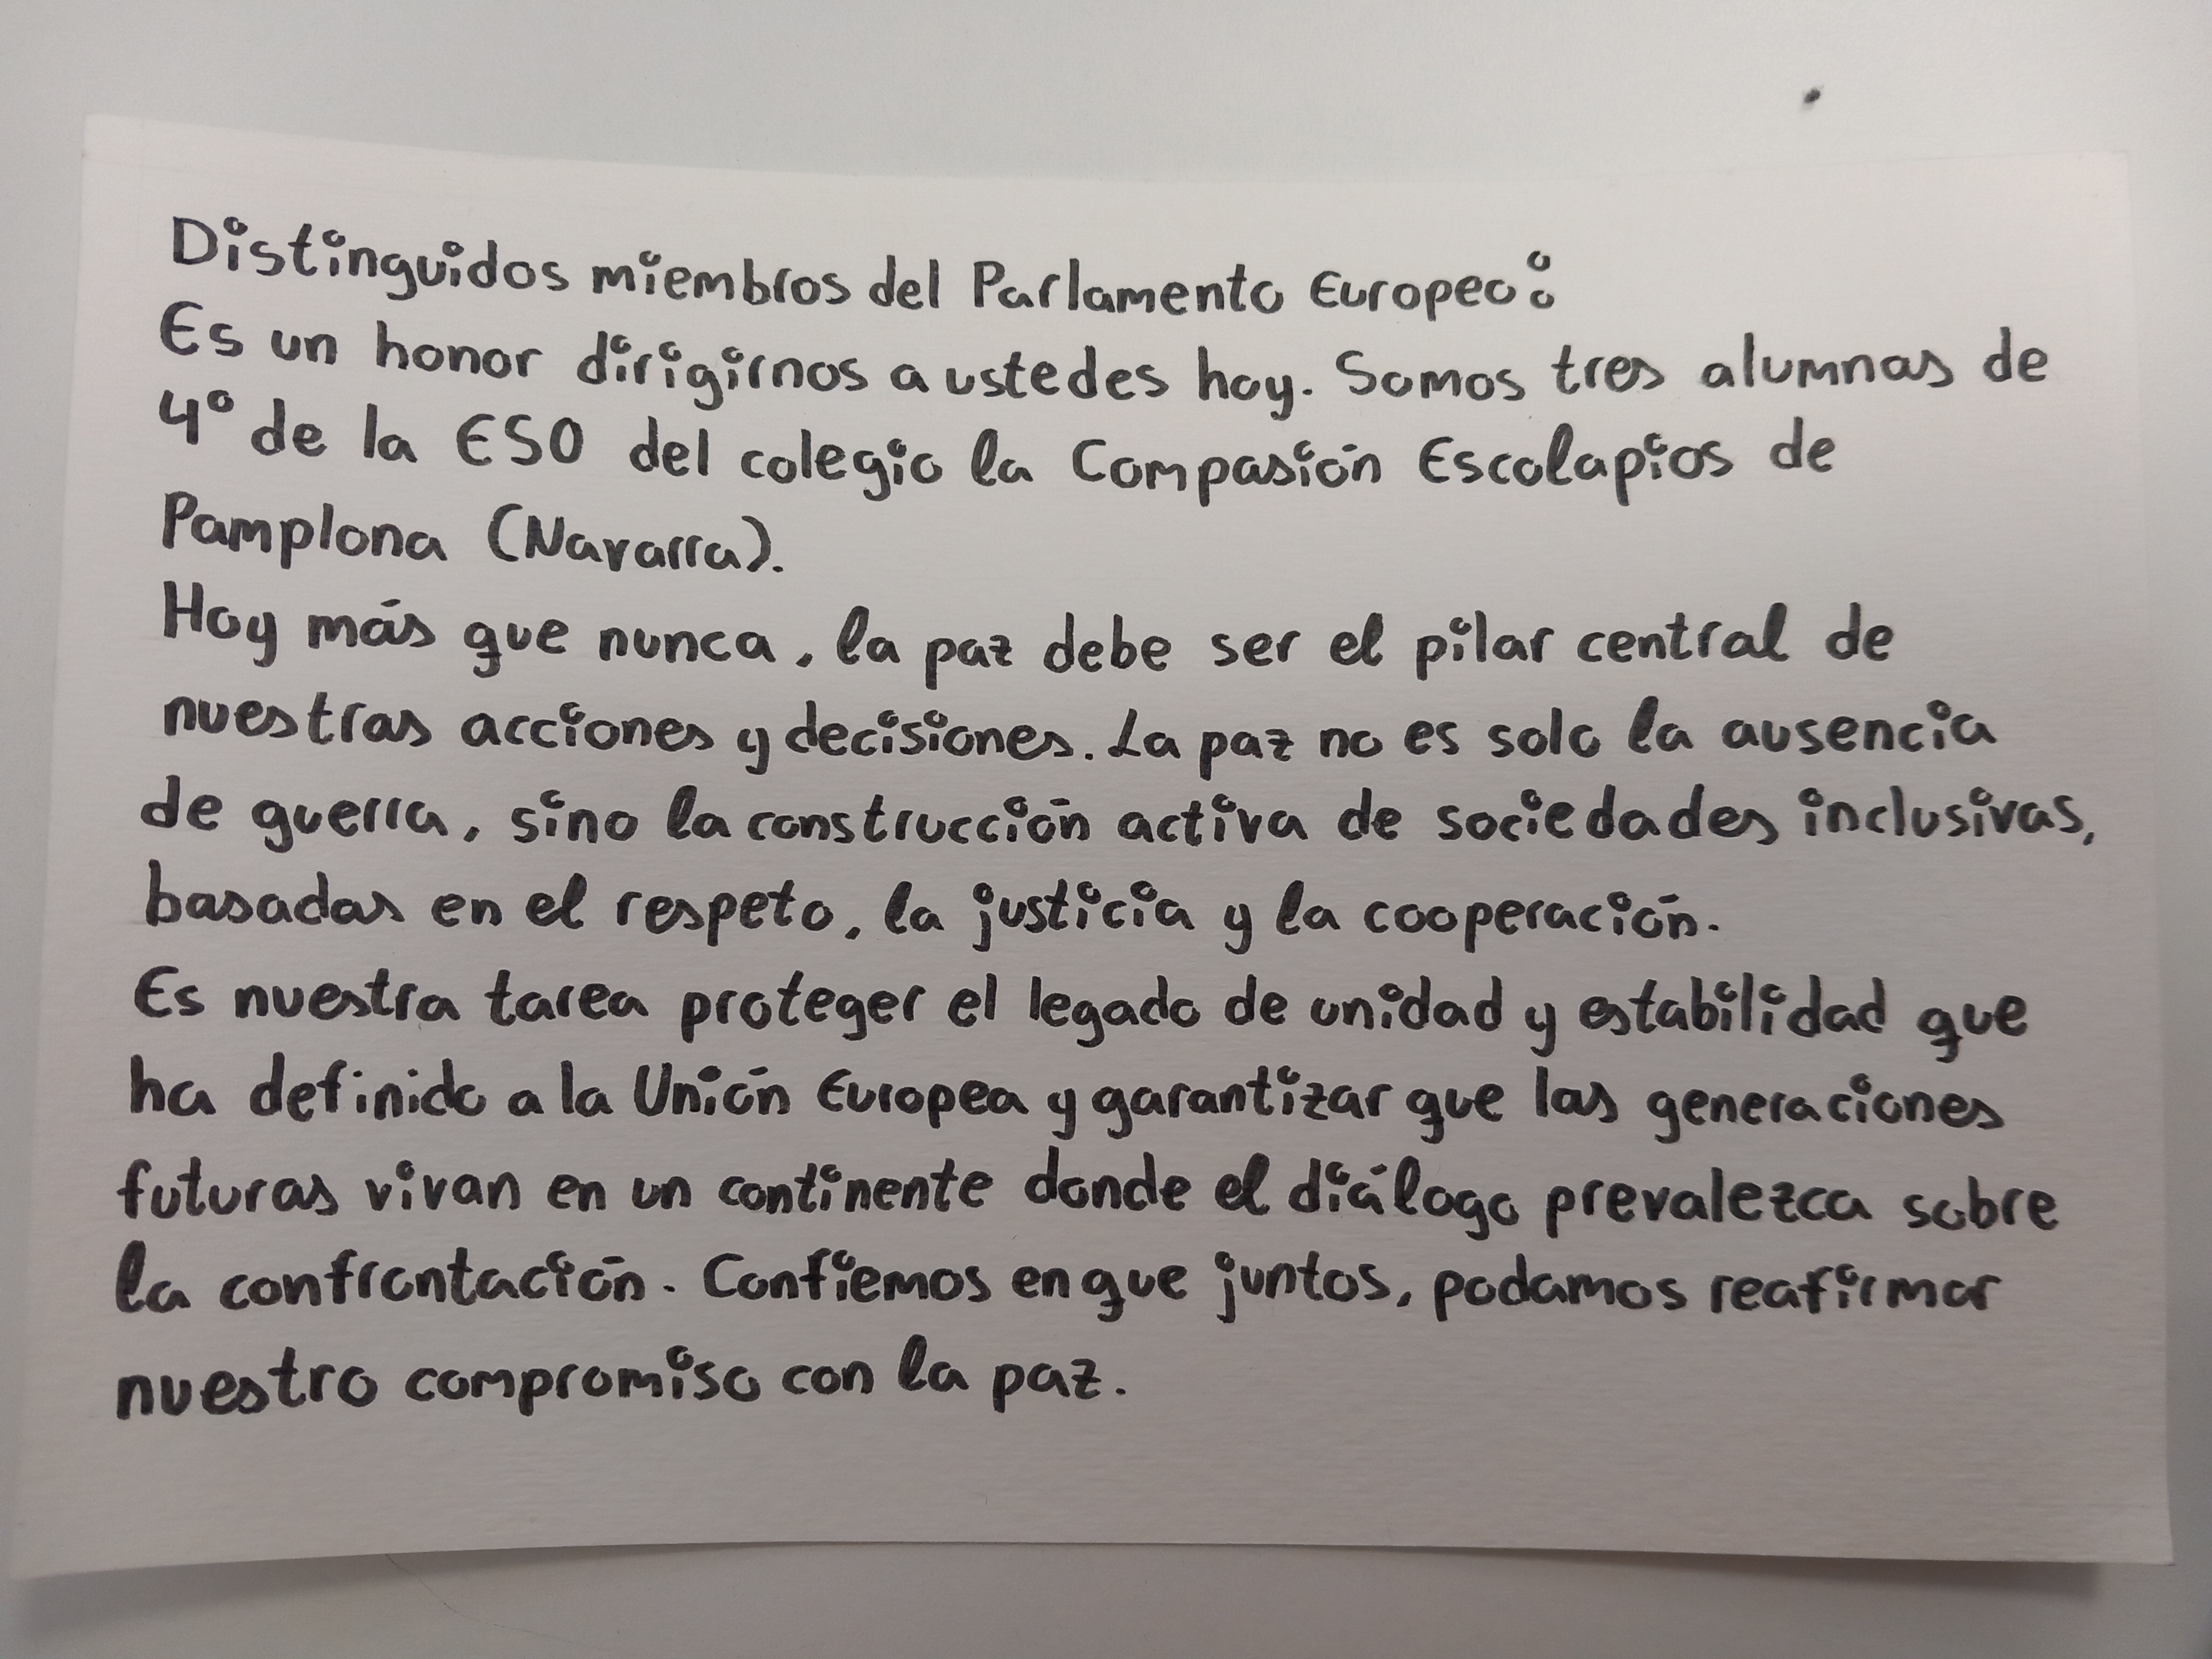 Distinguidos miembros del Parlamento Europeo:
Es un honor dirigirnos a ustedes hoy. Somos tres alumnas de
4º de la ESO del colegio la Compasión Escolapios de
Pamplona (Navarra).
Hoy más que nunca, la paz debe ser el pilar central de
nuestras acciones y decisiones. La paz no es solo la ausencia
de guerra, sino la construcción activa de sociedades inclusivas,
basadas en el respeto, la justicia y la cooperación.
Es nuestra tarea proteger el legado de unidad y estabilidad que
ha definido a la Unión Europea y garantizar que las generaciones
futuras vivan en un continente donde el diálogo prevalezca sobre
la confrontación. Confiemos en que juntos, podamos reafirmar
nuestro compromiso con la paz.